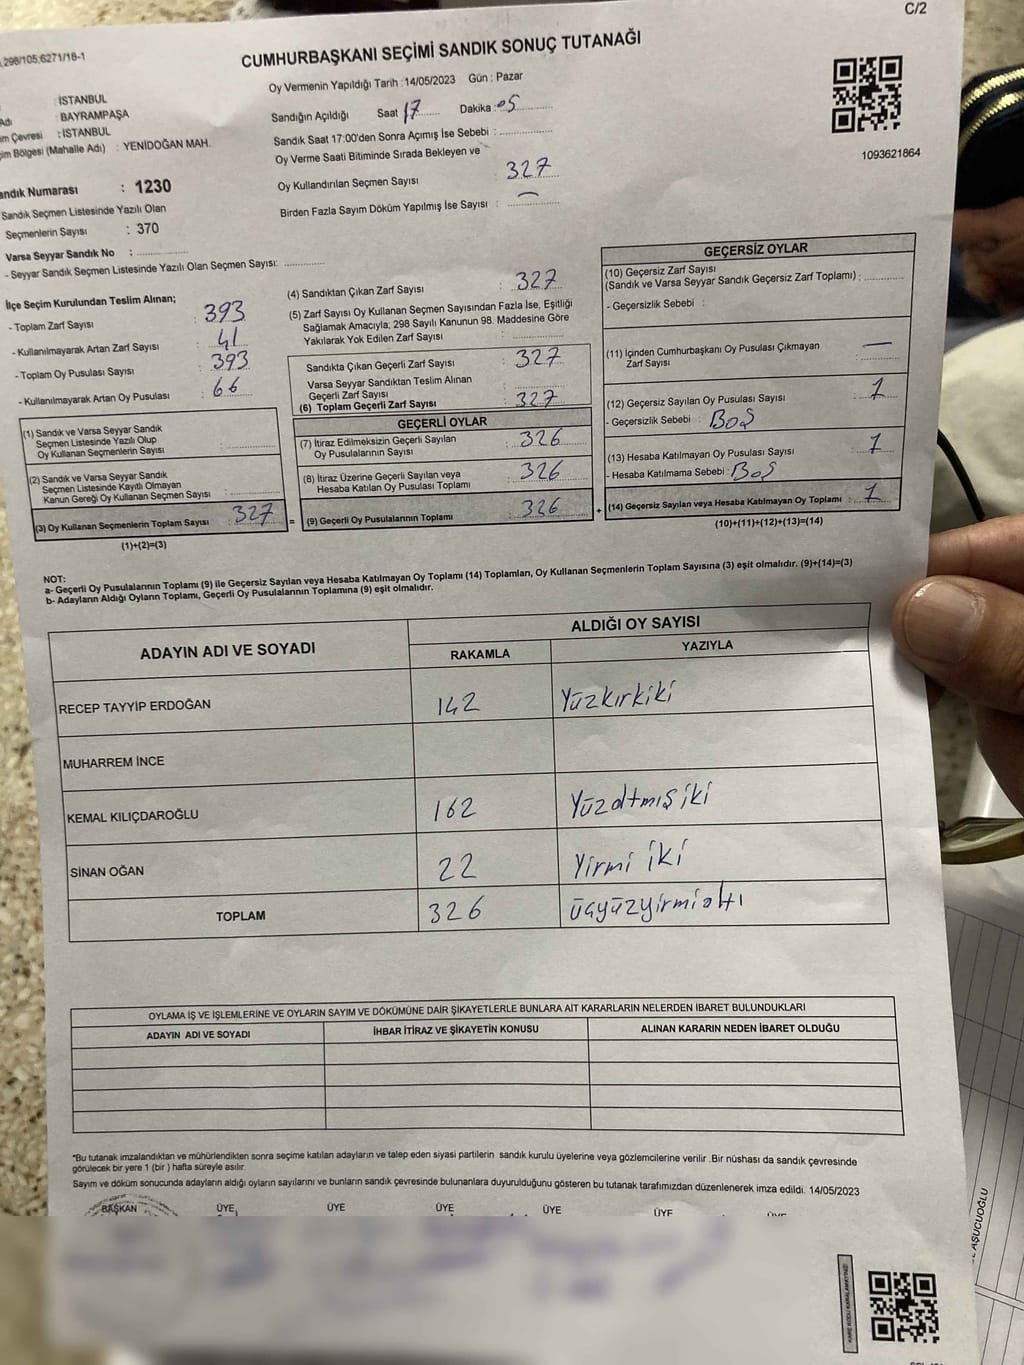 C/2
298/105;6271/16-1
CUMHURBAŞKANI SEÇİMİ SANDIK SONUÇ TUTANAĞI
Oy Vermenin Yapıldığı Tarih :14/05/2023 Gün : Pazar
: İSTANBUL
Adı : BAYRAMPAŞA
im Çevresi : İSTANBUL
çim Bölgesi (Mahalle Adı) : YENİDOĞAN MAH.
andık Numarası : 1230
Sandık Seçmen Listesinde Yazılı Olan
Seçmenlerin Sayısı : 370
Varsa Seyyar Sandık No :
- Seyyar Sandık Seçmen Listesinde Yazılı Olan Seçmen Sayısı:
Sandığın Açıldığı Saat 17 Dakika : 05
Sandık Saat 17:00'den Sonra Açımış İse Sebebi :
Oy Verme Saati Bitiminde Sırada Bekleyen ve
Oy Kullandırılan Seçmen Sayısı : 327
Birden Fazla Sayım Döküm Yapılmış İse Sayısı : —
1093621864
İlçe Seçim Kurulundan Teslim Alınan;
- Toplam Zarf Sayısı : 393
- Kullanılmayarak Artan Zarf Sayısı : 41
- Toplam Oy Pusulası Sayısı : 393
- Kullanılmayarak Artan Oy Pusulası : 66
(1) Sandık ve Varsa Seyyar Sandık
Seçmen Listesinde Yazılı Olup
Oy Kullanan Seçmenlerin Sayısı :
(2) Sandık ve Varsa Seyyar Sandık
Seçmen Listesinde Kayıtlı Olmayan
Kanun Gereği Oy Kullanan Seçmen Sayısı :
(3) Oy Kullanan Seçmenlerin Toplam Sayısı : 327 =
(1)+(2)=(3)
(4) Sandıktan Çıkan Zarf Sayısı : 327
(5) Zarf Sayısı Oy Kullanan Seçmen Sayısından Fazla İse, Eşitliği
Sağlamak Amacıyla; 298 Sayılı Kanunun 98. Maddesine Göre
Yakılarak Yok Edilen Zarf Sayısı :
Sandıkta Çıkan Geçerli Zarf Sayısı : 327
Varsa Seyyar Sandıktan Teslim Alınan
Geçerli Zarf Sayısı :
(6) Toplam Geçerli Zarf Sayısı : 327
GEÇERLİ OYLAR
(7) İtiraz Edilmeksizin Geçerli Sayılan
Oy Pusulalarının Sayısı : 326
(8) İtiraz Üzerine Geçerli Sayılan veya
Hesaba Katılan Oy Pusulası Toplamı : 326
(9) Geçerli Oy Pusulalarının Toplamı : 326 +
GEÇERSİZ OYLAR
(10) Geçersiz Zarf Sayısı
(Sandık ve Varsa Seyyar Sandık Geçersiz Zarf Toplamı) :
- Geçersizlik Sebebi :
(11) İçinden Cumhurbaşkanı Oy Pusulası Çıkmayan
Zarf Sayısı : —
(12) Geçersiz Sayılan Oy Pusulası Sayısı : 1
- Geçersizlik Sebebi : BOŞ
(13) Hesaba Katılmayan Oy Pusulası Sayısı : 1
- Hesaba Katılmama Sebebi : BOŞ
(14) Geçersiz Sayılan veya Hesaba Katılmayan Oy Toplamı : 1
(10)+(11)+(12)+(13)=(14)
NOT:
a- Geçerli Oy Pusulalarının Toplamı (9) ile Geçersiz Sayılan veya Hesaba Katılmayan Oy Toplamı (14) Toplamları, Oy Kullanan Seçmenlerin Toplam Sayısına (3) eşit olmalıdır. (9)+(14)=(3)
b- Adayların Aldığı Oyların Toplamı, Geçerli Oy Pusulalarının Toplamına (9) eşit olmalıdır.
ADAYIN ADI VE SOYADI
ALDIĞI OY SAYISI
RAKAMLA YAZIYLA
RECEP TAYYİP ERDOĞAN 142 Yüzkırkiki
MUHARREM İNCE
KEMAL KILIÇDAROĞLU 162 Yüzatmışiki
SİNAN OĞAN 22 Yirmi iki
TOPLAM 326 üçyüzyirmialtı
OYLAMA İŞ VE İŞLEMLERİNE VE OYLARIN SAYIM VE DÖKÜMÜNE DAİR ŞİKAYETLERLE BUNLARA AİT KARARLARIN NELERDEN İBARET BULUNDUKLARI
ADAYIN ADI VE SOYADI İHBAR İTİRAZ VE ŞİKAYETİN KONUSU ALINAN KARARIN NEDEN İBARET OLDUĞU
*Bu tutanak imzalandıktan ve mühürlendikten sonra seçime katılan adayların ve talep eden siyasi partilerin sandık kurulu üyelerine veya gözlemcilerine verilir .Bir nüshası da sandık çevresinde
görülecek bir yere 1 (bir ) hafta süreyle asılır.
Sayım ve döküm sonucunda adayların aldığı oyların sayılarını ve bunların sandık çevresinde bulunanlara duyurulduğunu gösteren bu tutanak tarafımızdan düzenlenerek imza edildi. 14/05/2023
BAŞKAN ÜYE ÜYE ÜYE ÜYE ÜYE ÜYE
AŞUCUOĞLU